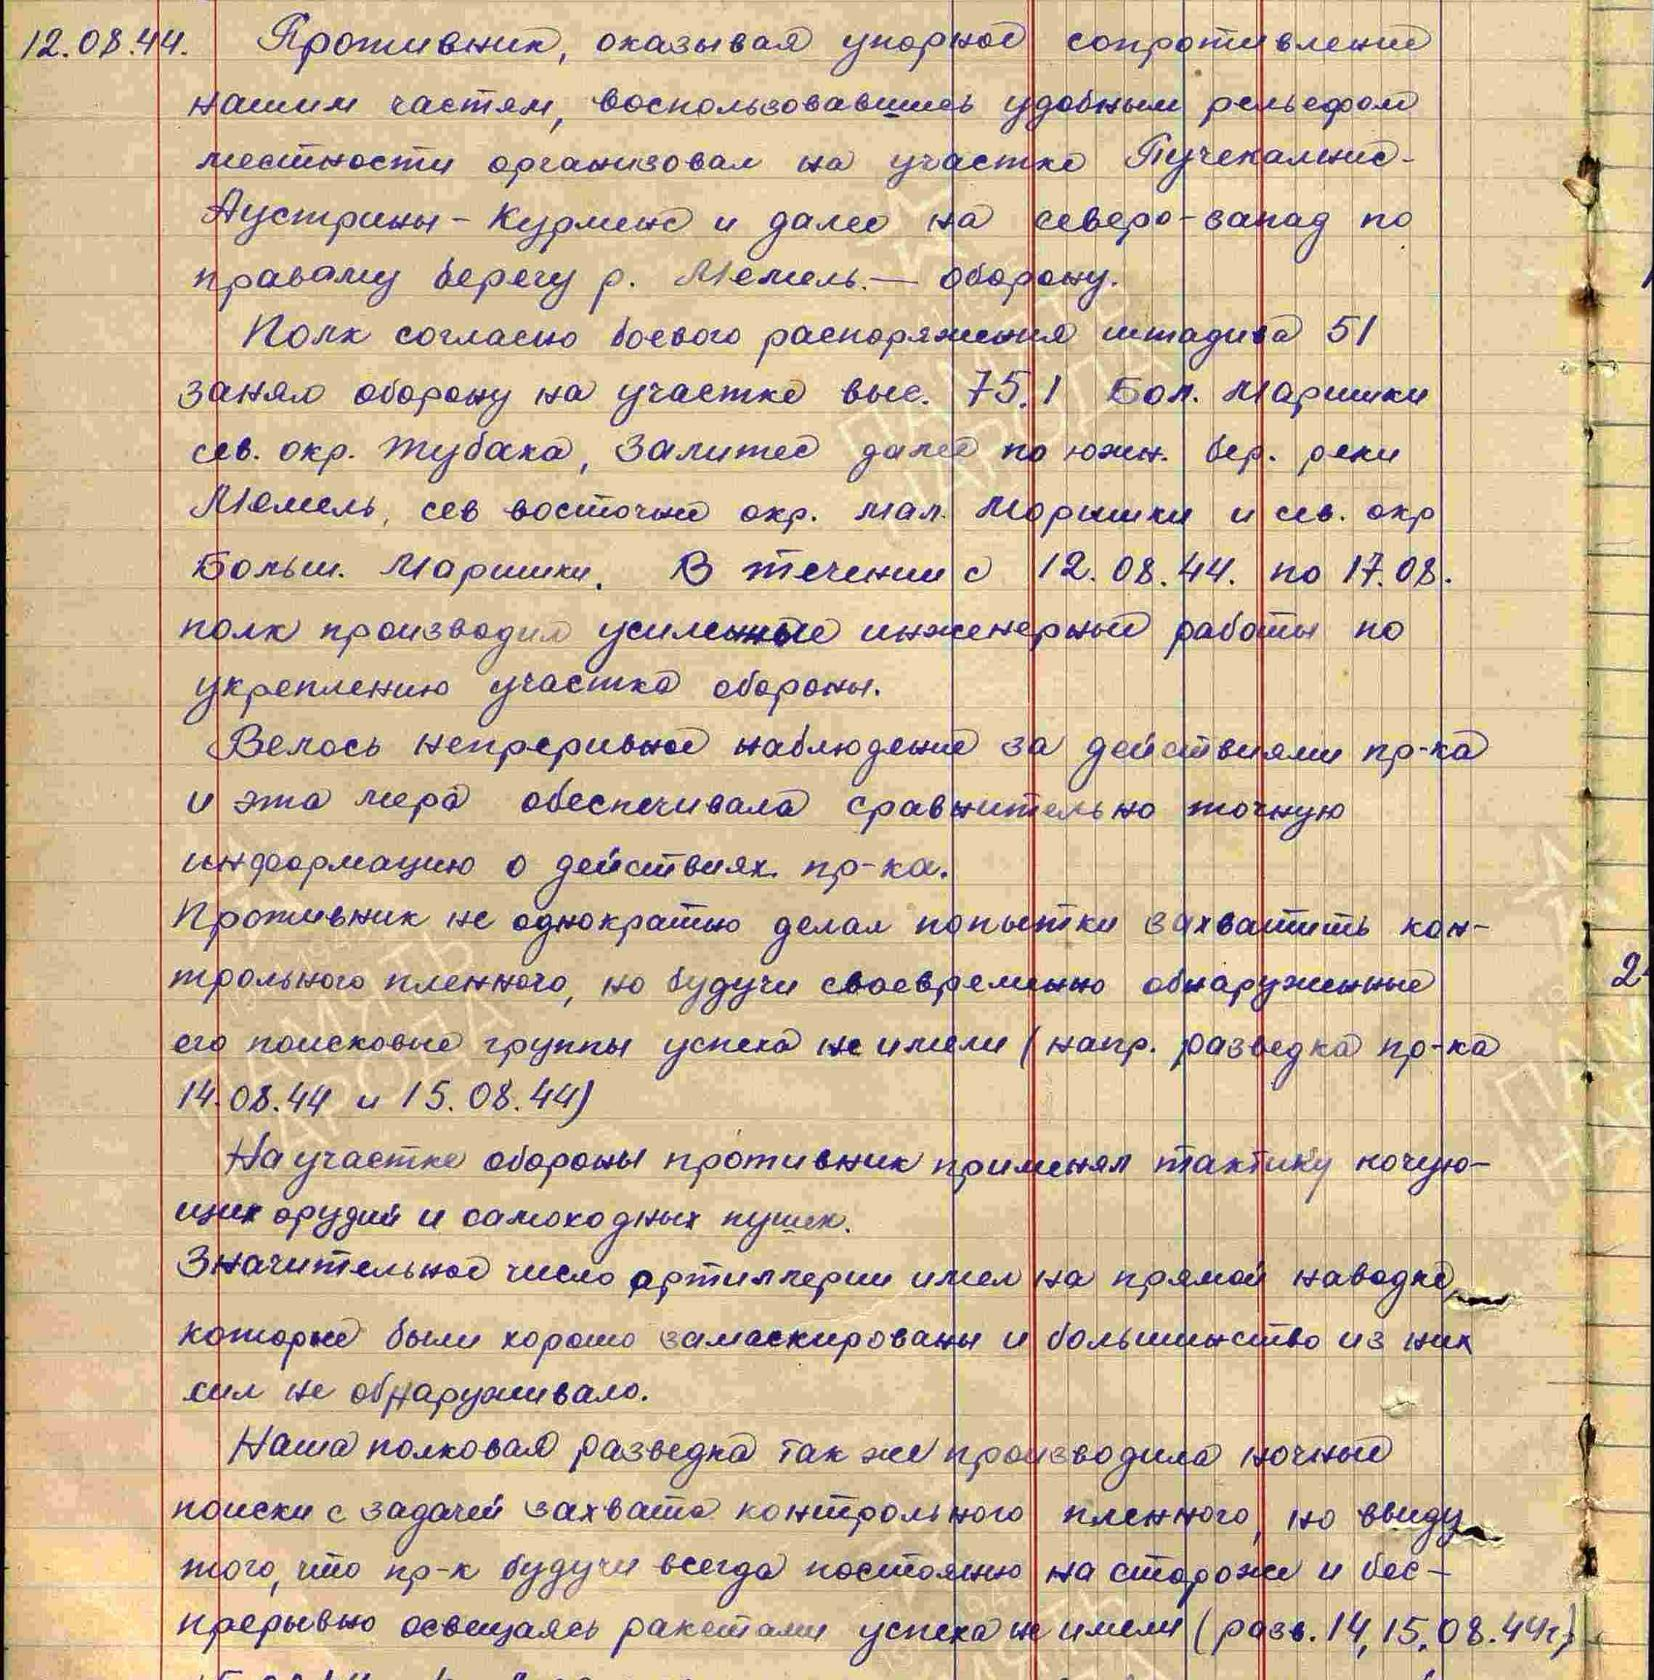 12.08.44. Противник, оказывая упорное сопротивление
нашим частям, воспользовавшись удобным рельефом
местности организовал на участке Пучекалнс-
Аустрины - Курмене и далее на северо-запад по
правому берегу р. Мемель. — оборону.
Полк согласно боевого распоряжения штадива 51
занял оборону на участке выс. 75.1 Бол. Маришки
сев. окр. Жубака, Залитес далее по южн. бер. реки
Мемель, сев восточные окр. мал. Маришки и сев. окр
Больш. Маришки. В течении с 12.08.44. по 17.08.
полк производил усиленные инженерные работы по
укреплению участка обороны.
Велось непреривное наблюдение за действиями пр-ка
и эта мера обеспечивала сравнительно точную
информацию о действиях пр-ка.
Противник не однократно делал попытки захватить кон-
трольного пленного, но будучи своевременно обнаруженные
его поисковые группы успеха не имели (напр. разведка пр-ка
14.08.44 и 15.08.44)
На участке обороны противник применял тактику кочую-
щих орудий и самоходных пушек.
Значительное число артиллерии имел на прямой наводке,
которые были хорошо замаскированы и большинство из них
сил не обнаруживало.
2
Наша полковая разведка так же производила ночные
поиски с задачей захвата контрольного пленного, но ввиду
того, что пр-к будучи всегда постоянно на стороже и бес-
прерывно освещаясь ракетами успеха не имели (разв. 14, 15.08.44г)
ПАМЯТЬ
НАРОДА